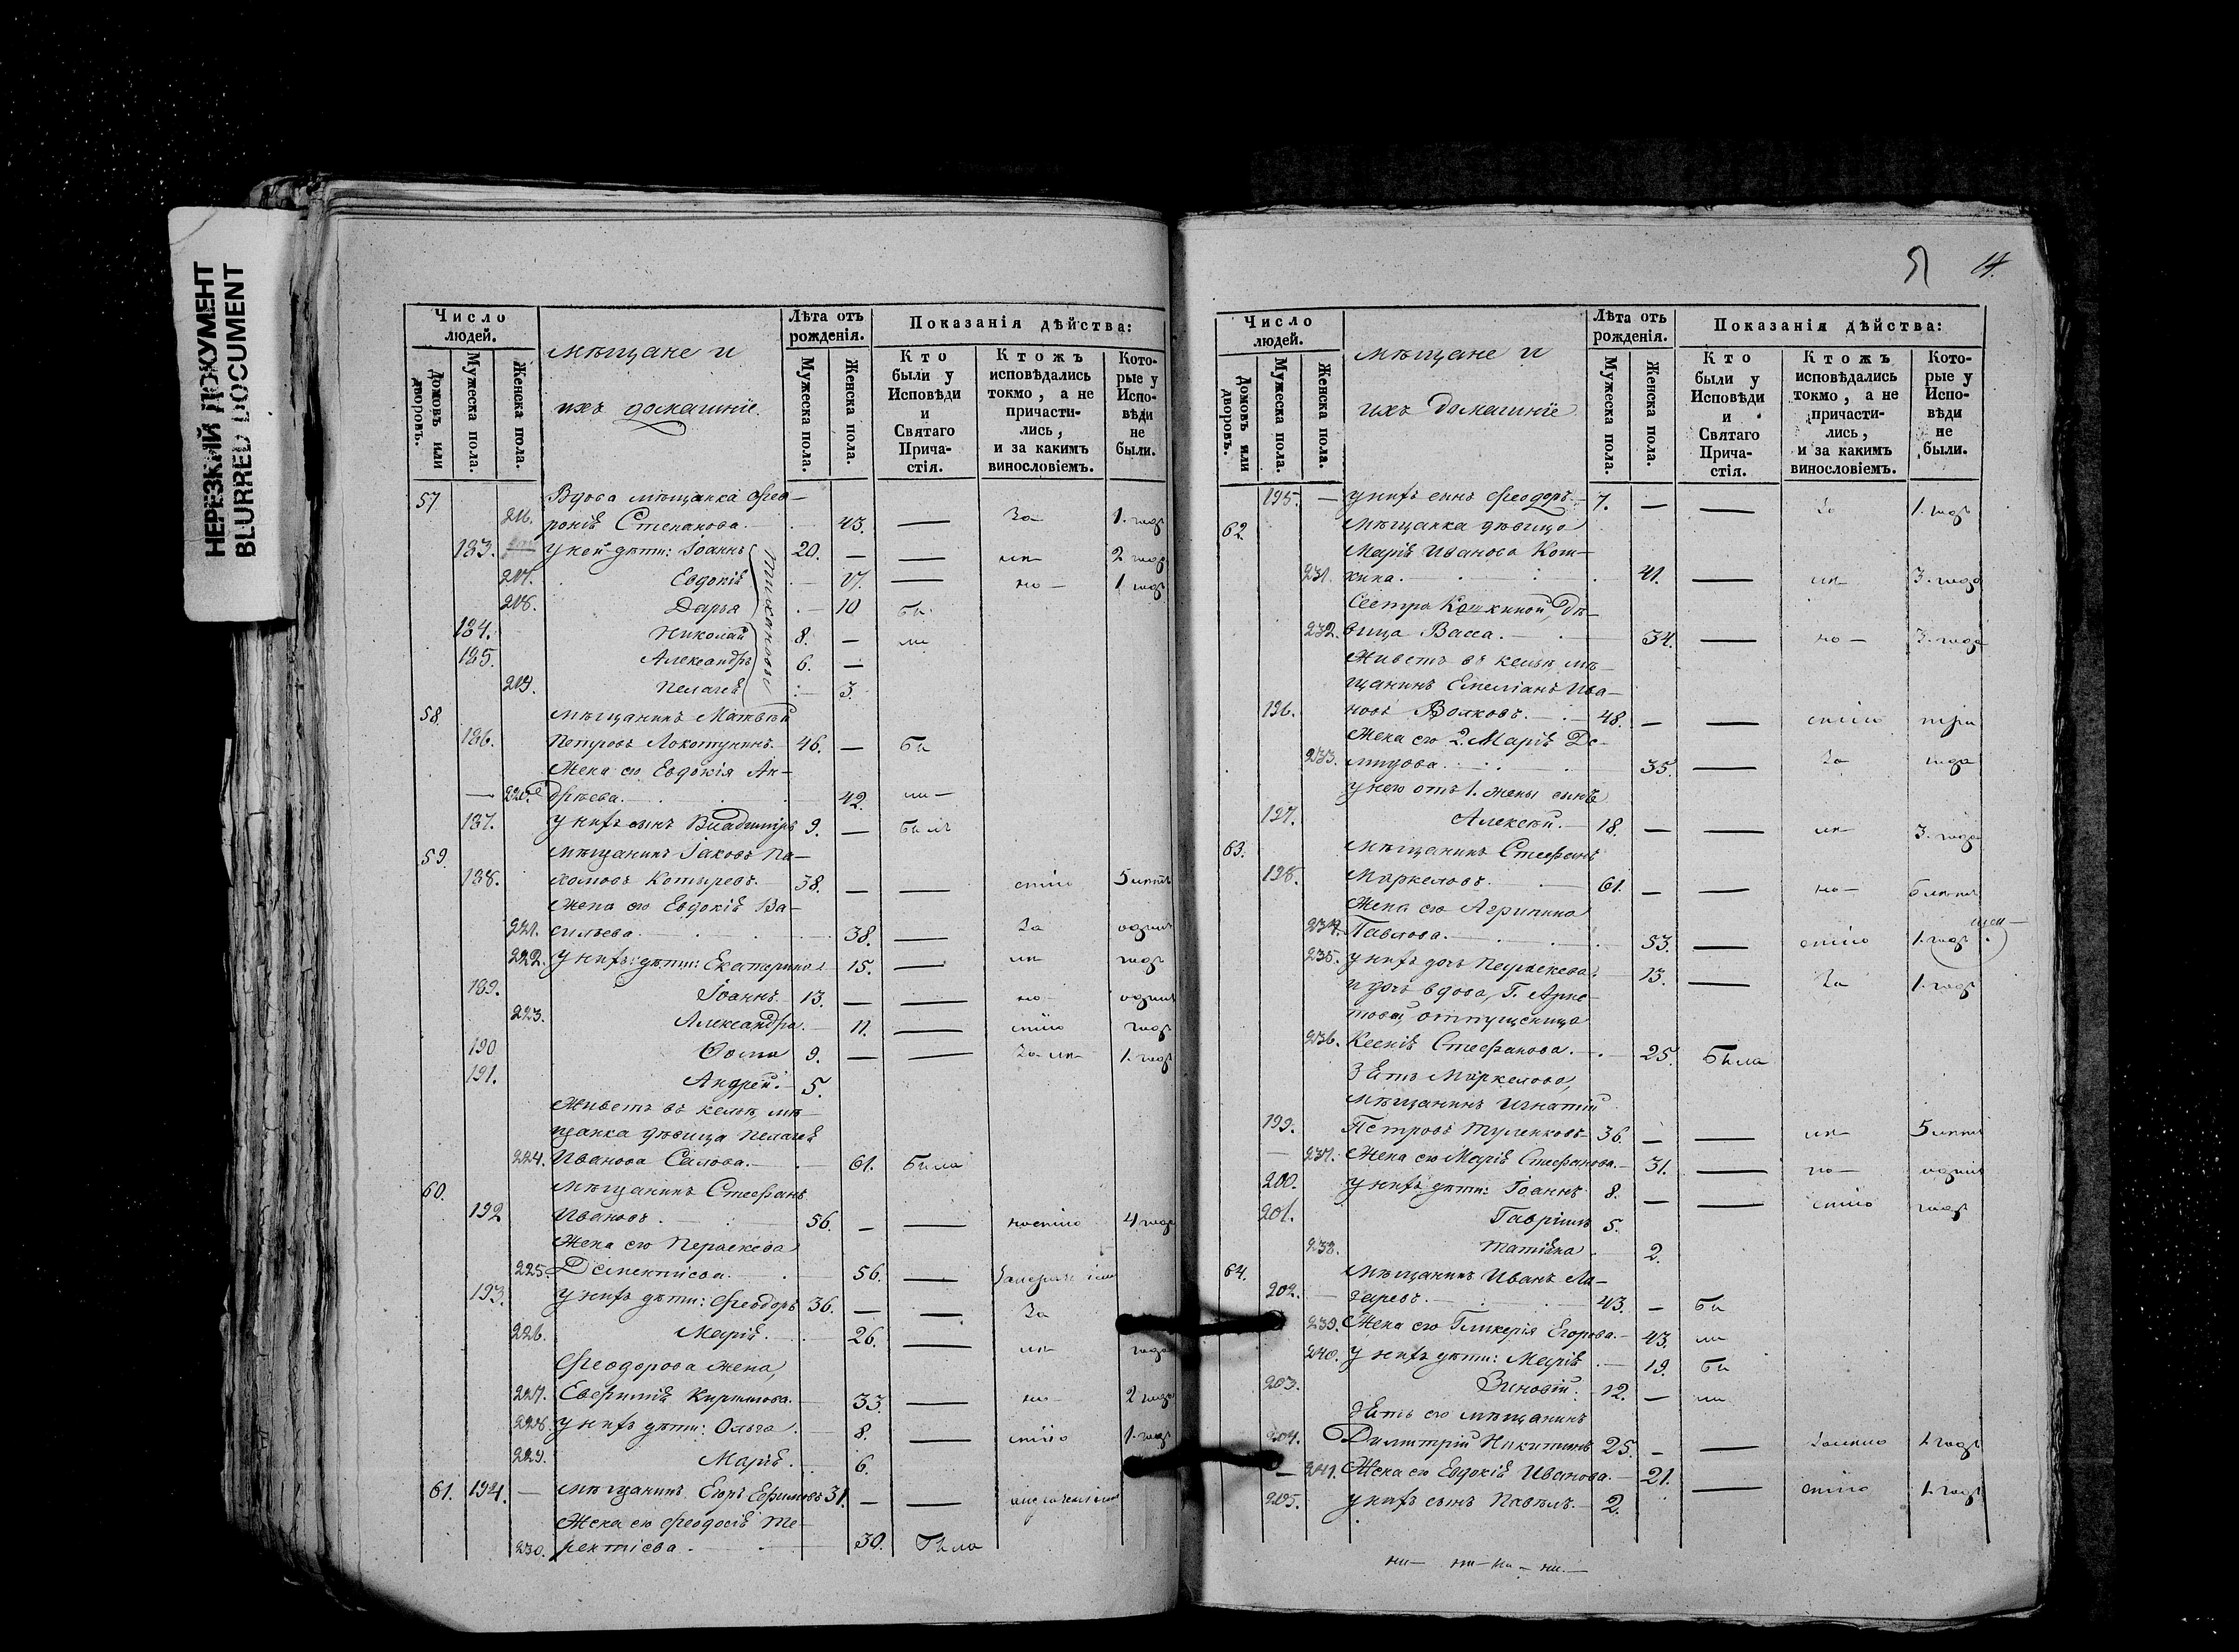 НЕРЕЗКИЙ ДОКУМЕНТ
BLURRED DOCUMENT
Число людей.
Домовъ или дворовъ.
Мужеска пола.
Женска пола.
мѣщане и
ихъ домашніе.
Лѣта отъ рожденія.
Мужеска пола.
Женска пола.
Показанія дѣйства:
Кто были у Исповѣди и Святаго Прича-стія.
Ктожъ исповѣдались токмо, а не причасти-лись, и за какимъ винословіемъ.
Кото-рые у Испо-вѣди не были.
57. Вдова мѣщанка Фев-
216. роніѣ Степанова. 43. — За 1. годъ
183. у ней дѣти: Іоаннъ 20. — — 2 года
217. Евдокіѣ 17. — но- 1 годъ
218. Дарья 10 бы
184. Николай 8. — ли
185. Александръ 6. —
219. Пелагеѣ 3.
Тихоновы
58. мѣщанинъ Матвѣй
186. Петровъ Локотунинъ. 46. — Бы
Жена его Евдокія Ан-
220. дрѣева. 42. ли-
187. у нихъ сынъ Владиміръ 9. — Былъ
59. Мѣщанинъ Іаковъ Па-
188. хомовъ Котыревъ. 38. — — стію 5 лѣтъ
Жена его Евдокіѣ Ва-
221. сильева. 38. — За одинъ
222. у нихъ дѣти: Екатерина 15. — годъ
189. Іоаннъ. 13. — — но- одинъ
223. Александра. 11. — стію годъ
190 Ѳома 9. — — 1. годъ
191. Андрей. 5.
Живетъ въ кельѣ мѣ-
щанка дѣвица Пелагеѣ
224. Иванова Салова. 61. Была
60. Мѣщанинъ Стефанъ
192 Ивановъ. 56. — — ностію 4 года
Жена его Пераскева
225. Дементіева. 56. —
193. у нихъ дѣти: Феодоръ 36. — — За
226. Маріѣ. 26. — года
Феодорова жена,
227. Евфиміѣ Кирилова. 33. — но- 2 года
228. у нихъ дѣти: Ольга. 8. — стію 1. годъ
229. Маріѣ. 6.
61. 194. — мѣщанинъ Егоръ Ефимовъ 31. — —
Жена его Феодосіѣ Те-
230. рентіева. 30. Была
14.
Число людей.
Домовъ или дворовъ.
Мужеска пола.
Женска пола.
мѣщане и
ихъ домашніе
Лѣта отъ рожденія.
Мужеска пола.
Женска пола.
Показанія дѣйства:
Кто были у Исповѣди и Святаго Прича-стія.
Ктожъ исповѣдались токмо, а не причасти-лись, и за какимъ винословіемъ.
Кото-рые у Испо-вѣди не были.
195. — у нихъ сынъ Феодоръ. 7. — — За 1. годъ
62. Мѣщанка дѣвица
Маріѣ Иванова Кош-
231. кина. 41. — 3. года
Сестра Кошкиной, дѣ-
232. вица Васса. 34. — но- 3. года
Живетъ въ кельѣ мѣ-
щанинъ Емеліанъ Ива-
196. новъ Волковъ. 48. — — стію три
Жена его 2. Маріѣ Де-
233. мидова. 35. — За года
у него отъ 1. жены сынъ
197. Алексѣй. 18. — — 3. года
63. Мѣщанинъ Стефанъ
198. Маркеловъ. 61. — — но- 6 лѣтъ
Жена его Агрипина
234. Павлова. 53. — стію 1. годъ
235. у нихъ дочь Параскева. 13. — За 1. годъ
и дочь вдова, Г. Арис-
това, отпущеница
236. Ксеніѣ Стефанова. 25. Была
Зѣть Маркелова,
мѣщанинъ Игнатій
199. Петровъ Туленковъ. 36. — — 5 лѣтъ
237. Жена его Маріѣ Стефанова. 31. — но- одинъ
200. у нихъ дѣти: Іоаннъ 8. — — стію годъ
201. Гавріилъ 5.
238. Татіѣна 2.
64. Мѣщанинъ Иванъ Ла-
202. заревъ. 43. — Бы
239. Жена его Гликерія Егорова. 43. ли
240. у нихъ дѣти: Маріѣ. 19. бы
203. Зиновій. 12. — ли
зѣть его мѣщанинъ
204. Димитрій Никитинъ 25. — — 1. годъ
241. Жена его Евдокіѣ Иванова. 21. — стію 1. годъ
205. у нихъ сынъ Павелъ. 2.